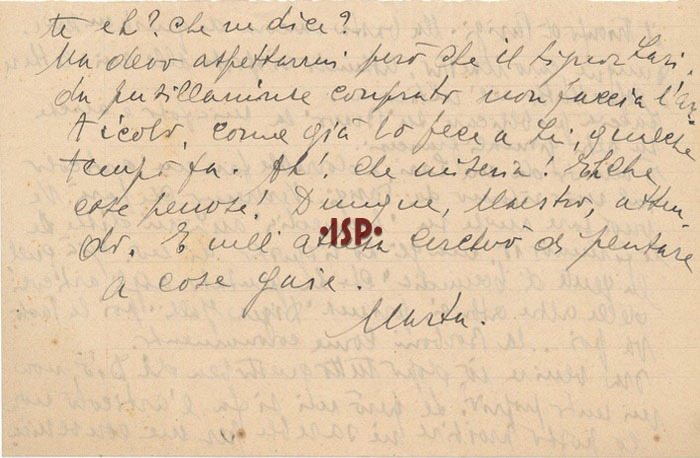 te eh? che ne dice?
Ma devo aspettarmi però che il signor
da pusillanime comprato non faccia l'ar
ticolo, come già lo fece a Lei, qualche
tempo fa. Ah! che miseria! E che
cose penose! Dunque, Maestro, atten
do. E nell' attesa cercherò di pensare
a cose gaie.
Marta.
·ISP·